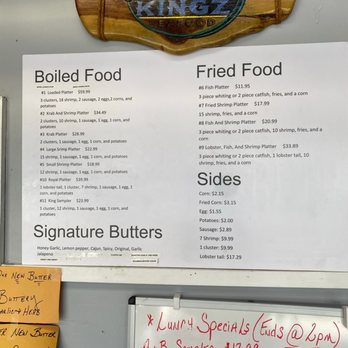 KINGZ
SEAFOOD
Boiled Food
#1 Loaded Platter $59.99
3 clusters, 18 shrimp, 2 sausage, 2 eggs,2 corn, and
potatoes
#2 Krab And Shrimp $34.49
2 clusters, 10 shrimp, 1 sausage, 1 egg, 1 corn, and
potatoes
#3 Krab Platter $28.99
2 clusters, 1 sausage, 1 egg, 1 corn, and potatoes
#4 Large Srimp Platter $22.99
15 shrimp, 2 sausage, 1 egg, 1 corn, and potatoes
#5 Small Shrimp Platter $18.99
12 shrimp, 1 sausage, 1 egg, 1 corn, and potatoes
#10 Royal Platter $39.99
1 lobster tail, 1 cluster, 7 shrimp, 1 sausage, 1 egg,
1 corn, and potatoes
#11 King Sampler $23.99
1 cluster, 12 shrimp, 1 sausage, 1 egg, 1 corn, and
potatoes
Signature Butters
Honey Garlic, Lemon pepper, Cajun, Spicy, Original, Garlic
Jalapeno
Fried Food
#6 Fish Platter $11.95
3 piece whiting or 2 piece catfish, fries, and a corn
#7 Fried Shrimp Platter $17.99
15 shrimp, fries, and a corn
#8 Fish And Shrimp Platter $20.99
3 piece whiting or 2 piece catfish, 10 shrimp, fries, and
a corn
#9 Lobster, Fish, And Shrimp Platter $33.89
3 piece whiting or 2 piece catfish, 1 lobster tail, 10
shrimp, fries, and a corn
Sides
Corn: $2.15
Fried Corn: $3.15
Egg: $1.55
Potatoes: $2.00
Sausage: $2.89
7 Shrimp: $9.99
1 cluster: $9.99
Lobster tail: $17.29
New Butter
Buttery
Garlic & Herb
New Butter
* Lunch Specials (Ends @ 2pm)